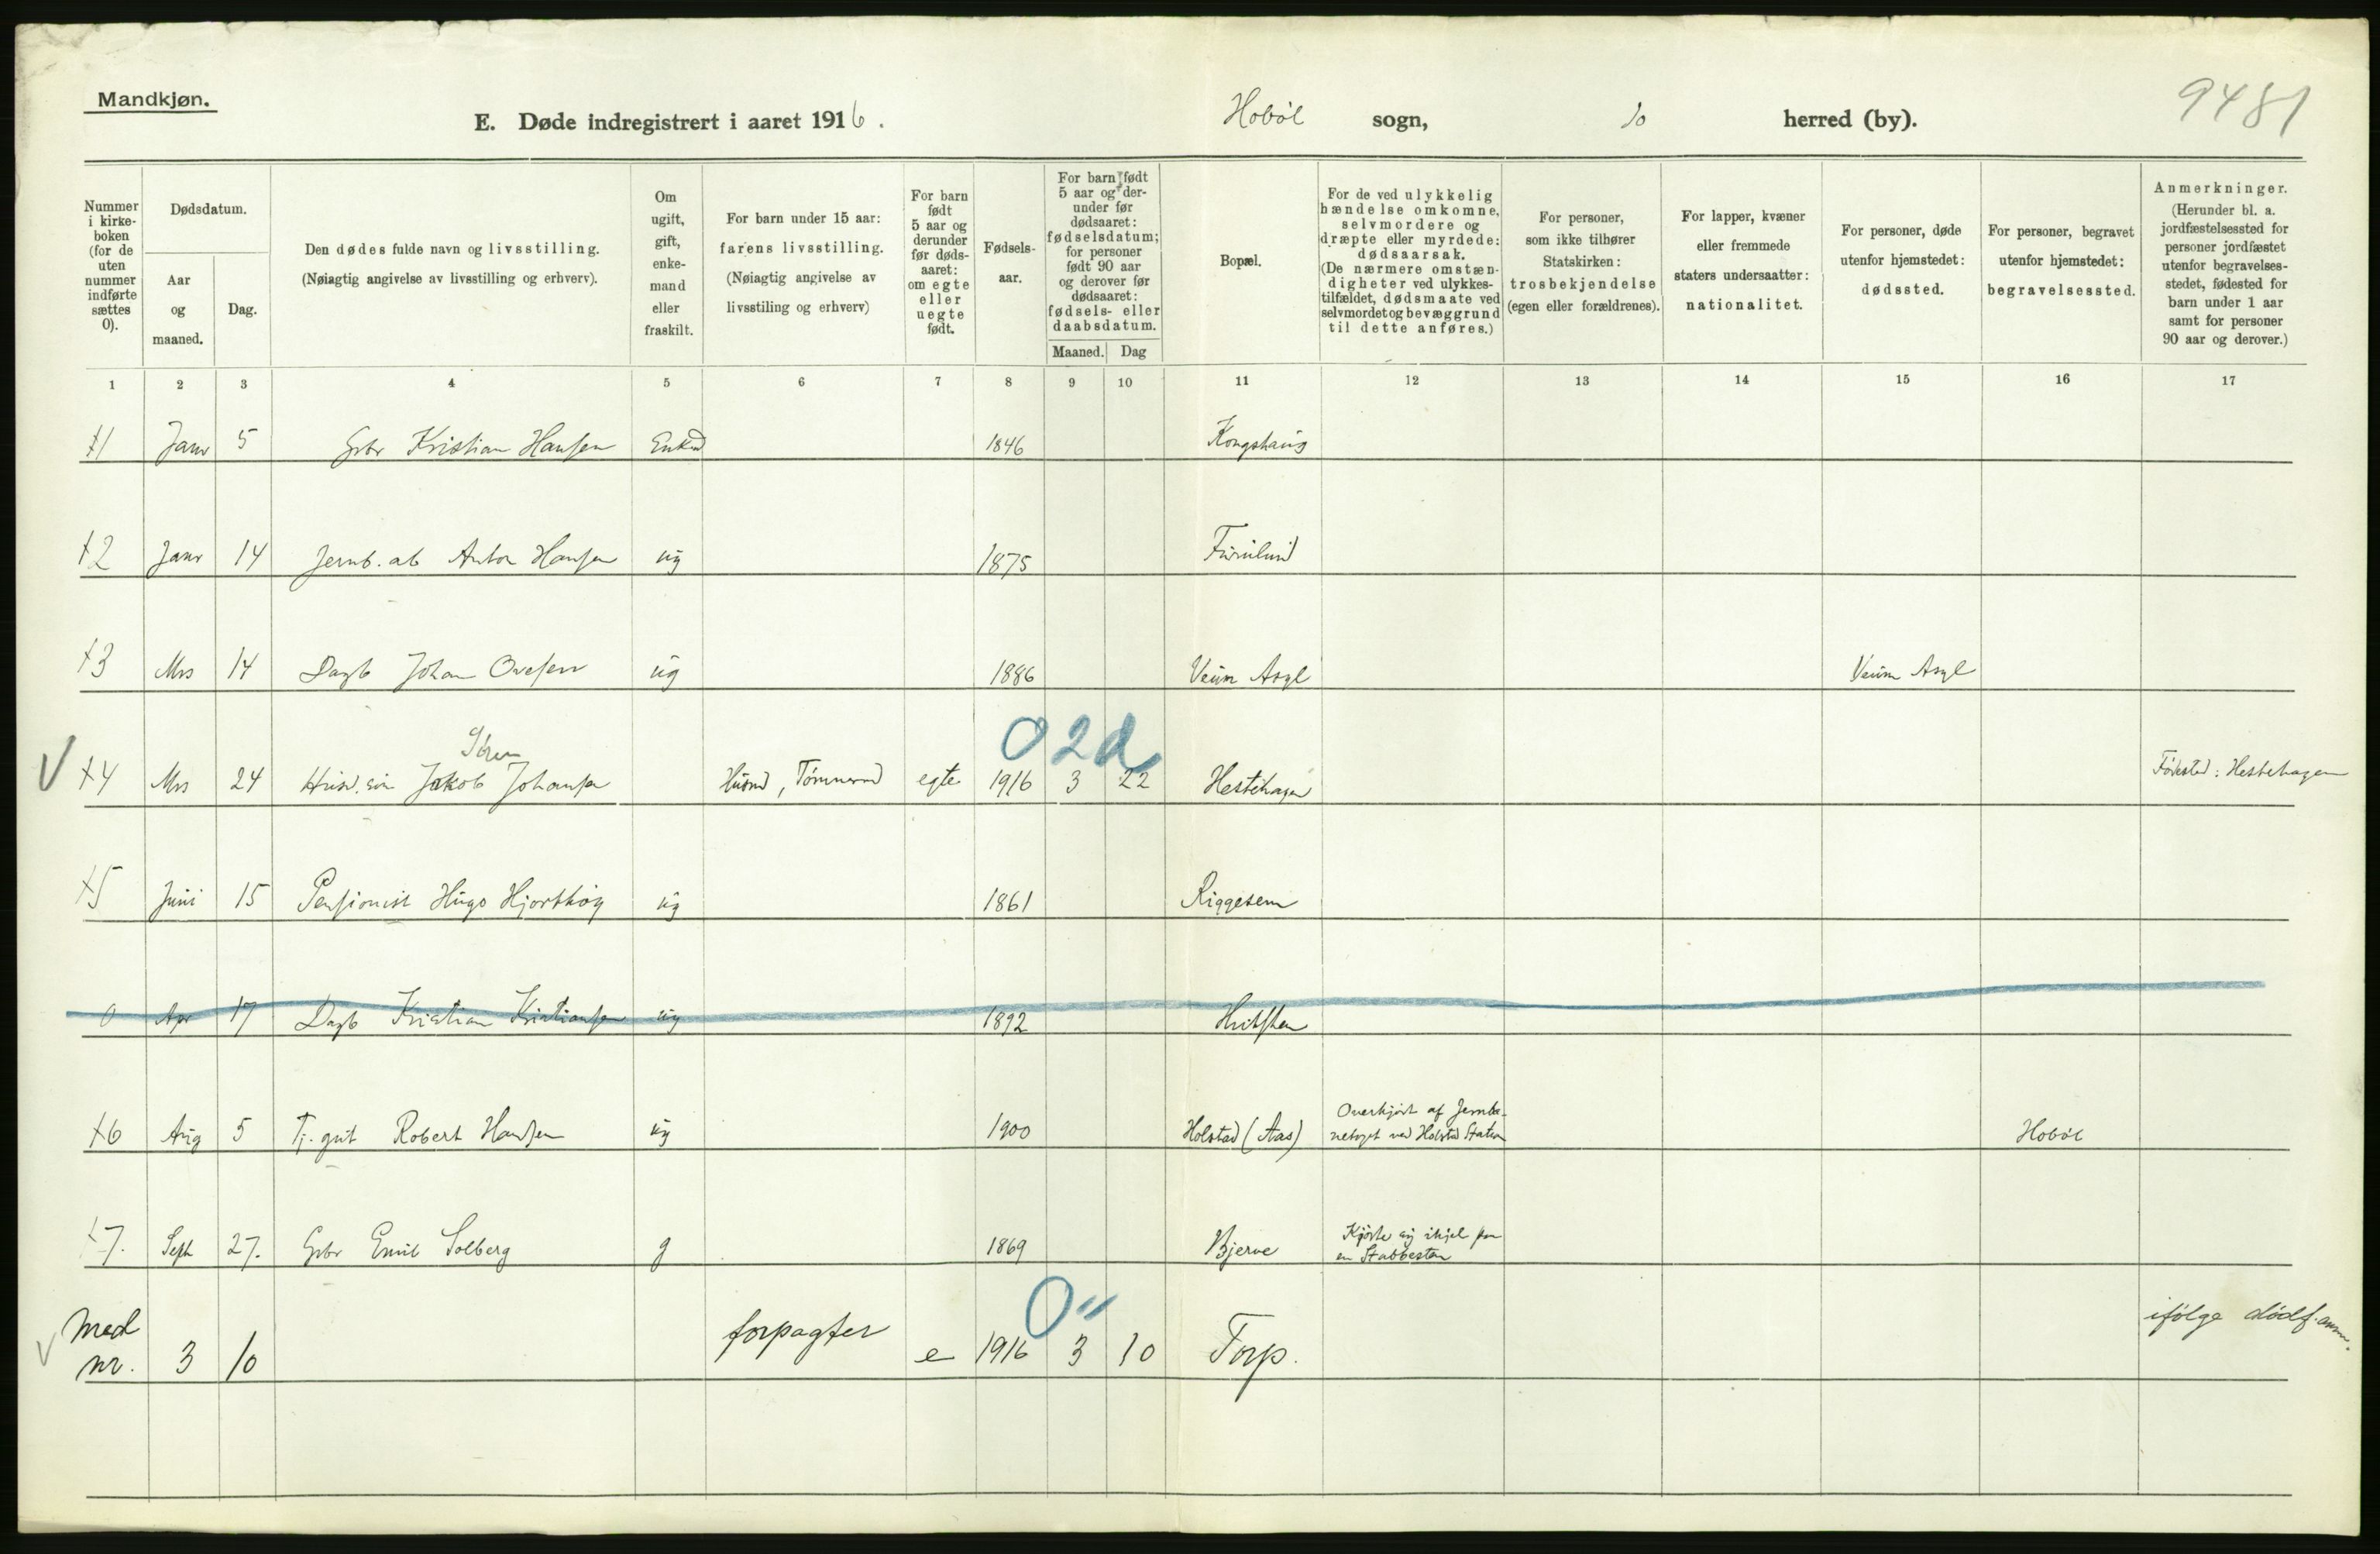 Mandkjøn.
9481
E. Døde indregistrert i aaret 1916. Hobøl sogn, Do herred (by).
Nummer i kirke- boken (for de uten nummer indførte sættes 0).
Dødsdatum.
Aar og maaned.
Dag.
Den dødes fulde navn og livsstilling.
(Nøiagtig angivelse av livsstilling og erhverv).
Om ugift, gift, enke- mand eller fraskilt.
For barn under 15 aar:
farens livsstilling.
(Nøiagtig angivelse av
livsstiling og erhverv)
For barn født 5 aar og derunder før døds- aaret: om egte eller uegte født.
Fødsels- aar.
For barn født 5 aar og der- under før dødsaaret: fødselsdatum; for personer født 90 aar og derover før dødsaaret: fødsels- eller daabsdatum.
Maaned. Dag
Bopæl.
For de ved ulykkelig hændelse omkomne, selvmordere og dræpte eller myrdede: dødsaarsak. (De nærmere omstæn- digheter ved ulykkes- tilfældet, dødsmaate ved selvmordet og bevæggrund til dette anføres.)
For personer, som ikke tilhører Statskirken: trosbekjendelse (egen eller forældrenes).
For lapper, kvæner eller fremmede staters undersaatter: nationalitet.
For personer, døde utenfor hjemstedet: dødssted.
For personer, begravet utenfor hjemstedet: begravelsessted.
Anmerkninger. (Herunder bl. a. jordfæstelsessted for personer jordfæstet utenfor begravelses- stedet, fødested for barn under 1 aar samt for personer 90 aar og derover.)
1 2 3 4 5 6 7 8 9 10 11 12 13 14 15 16 17
1 Janr 5 Gbr Kristian Hansen Enkd 1846 Kongshaug
2 Janr 14 Jernb. ab Anton Hansen ug 1875 Furulund
3 Mrs 14 Dagb Johan Ovesen ug 1886 Veum Asyl Veum Asyl
02d
4 Mrs 24 Husm. søn Jakob Johansen Husmd, Tømmermd egte 1916 3 22 Hestehagen Fødested: Hestehagen
5 Juni 15 Pensionist Hugo Hjorthøy ug 1861 Riggesem
0 Apr 17 Dagb Kristian Kristiansen ug 1892 Hvitsten
6 Aug 5 Tj. gut Robert Hansen ug 1900 Holstad (Aas) Overkjørt af Jernba- netoget ved Holstad Station Hobøl
7. Sept 27. Gbr Emil Solberg g 1869 Bjerve Kjørte sig ihjel paa en Stabbesten
0"
Med nr. 3 10 forpagter e 1916 3 10 Torp. ifølge dødf. anm.